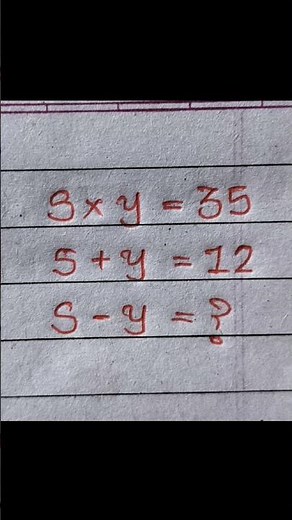 S × y = 35
S + y = 12
S - y = ?